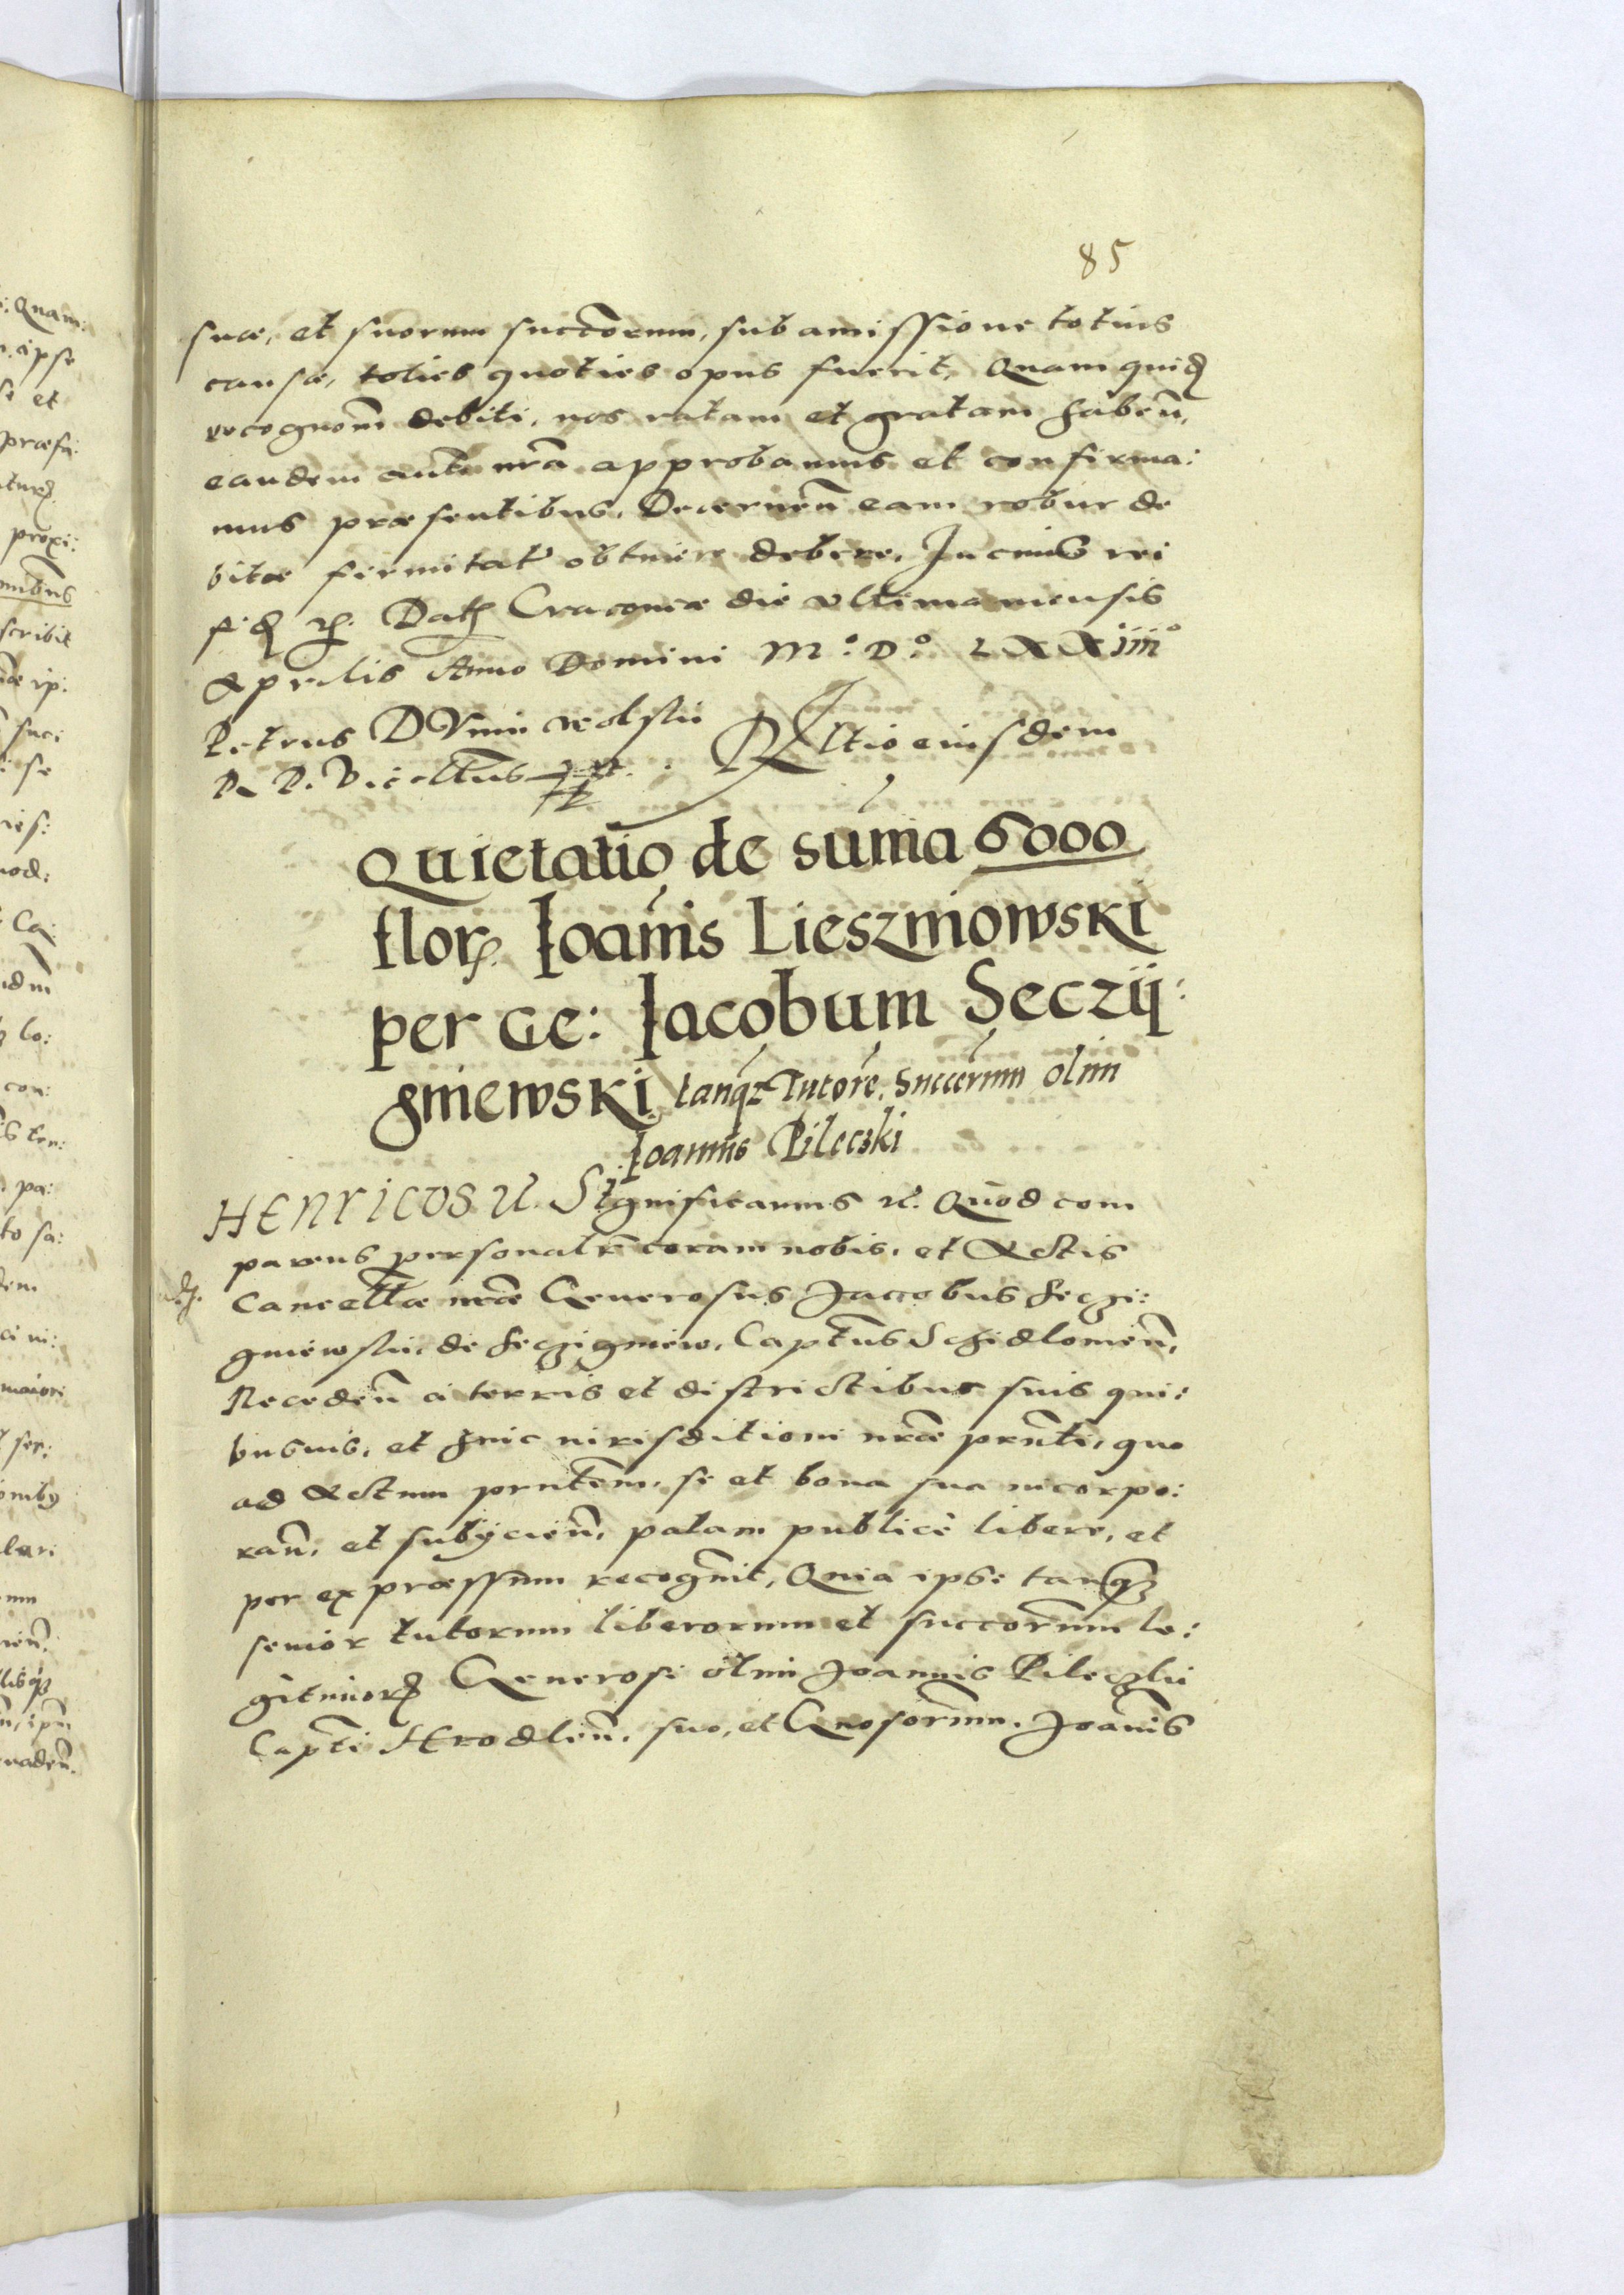 85
suæ, et suorum succōrum, sub amissione totius
causæ, toties quoties opus fuerit, Quam quid
recognom̄ debiti, nos ratam et gratam haben̄,
eandem autē nr̄a approbamus et confirma:
mus præsentibus, Decernen̄ eam robur de
bitæ firmitatꝭ obtinere debere, In cuius rei
fid ꝛc. Datꝭ Cracoviæ die ultima mensis
Aprilis Anno Domini M.º D.º LXXiiiiº
Petrus DVnin Wolskii
R. P. Vicecllr̄ius sst. Rltio eiusdem
Quietatio de sum̄a 6000
florꝝ. Ioan̄is Lieszniowski
per Ge: Iacobum Seczÿ:
gniewski, tanqꝫ Tutore, Succerūm olim
Joannis Pileczki
HENRICUS ꝛc. Significamus ꝛc. Quod com
parens personalr̄ coram nobis, et Actis
Cancellr̄æ nr̄æ Generosus Jaccobus Seczi:
gniewskii de Seczigniew, Captn̄us Schidlowien̄,
Receden̄ a terris et districtibus suis qui:
busuis, et huic iurisditioni nr̄æ prn̄ti, quo
ad Actum prntēm, se et bona sua incorpo:
ran̄, et subÿcien̄, palam publicè libere, et
per expræssum recognovit, Quia ipse tanqꝫ
senior tutorum liberorum et succorūm le:
gitimorꝝ Generosi olim Joannis Pileczkii
Capt̄i Hrodlien̄. suo, et Gn̄osorum. Joan̄is